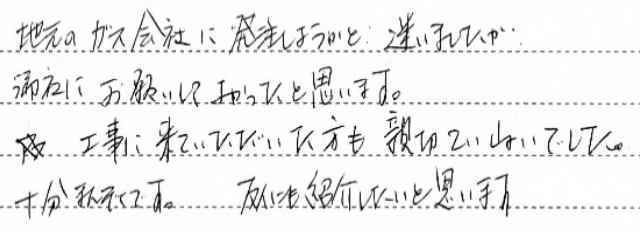 地元のガス会社に発注しようかと迷いましたが
御社にお願いしてよかったと思います。
工事に来ていただいた方も親切でいねいでした。
十分満足です。 友人にも紹介したいと思います